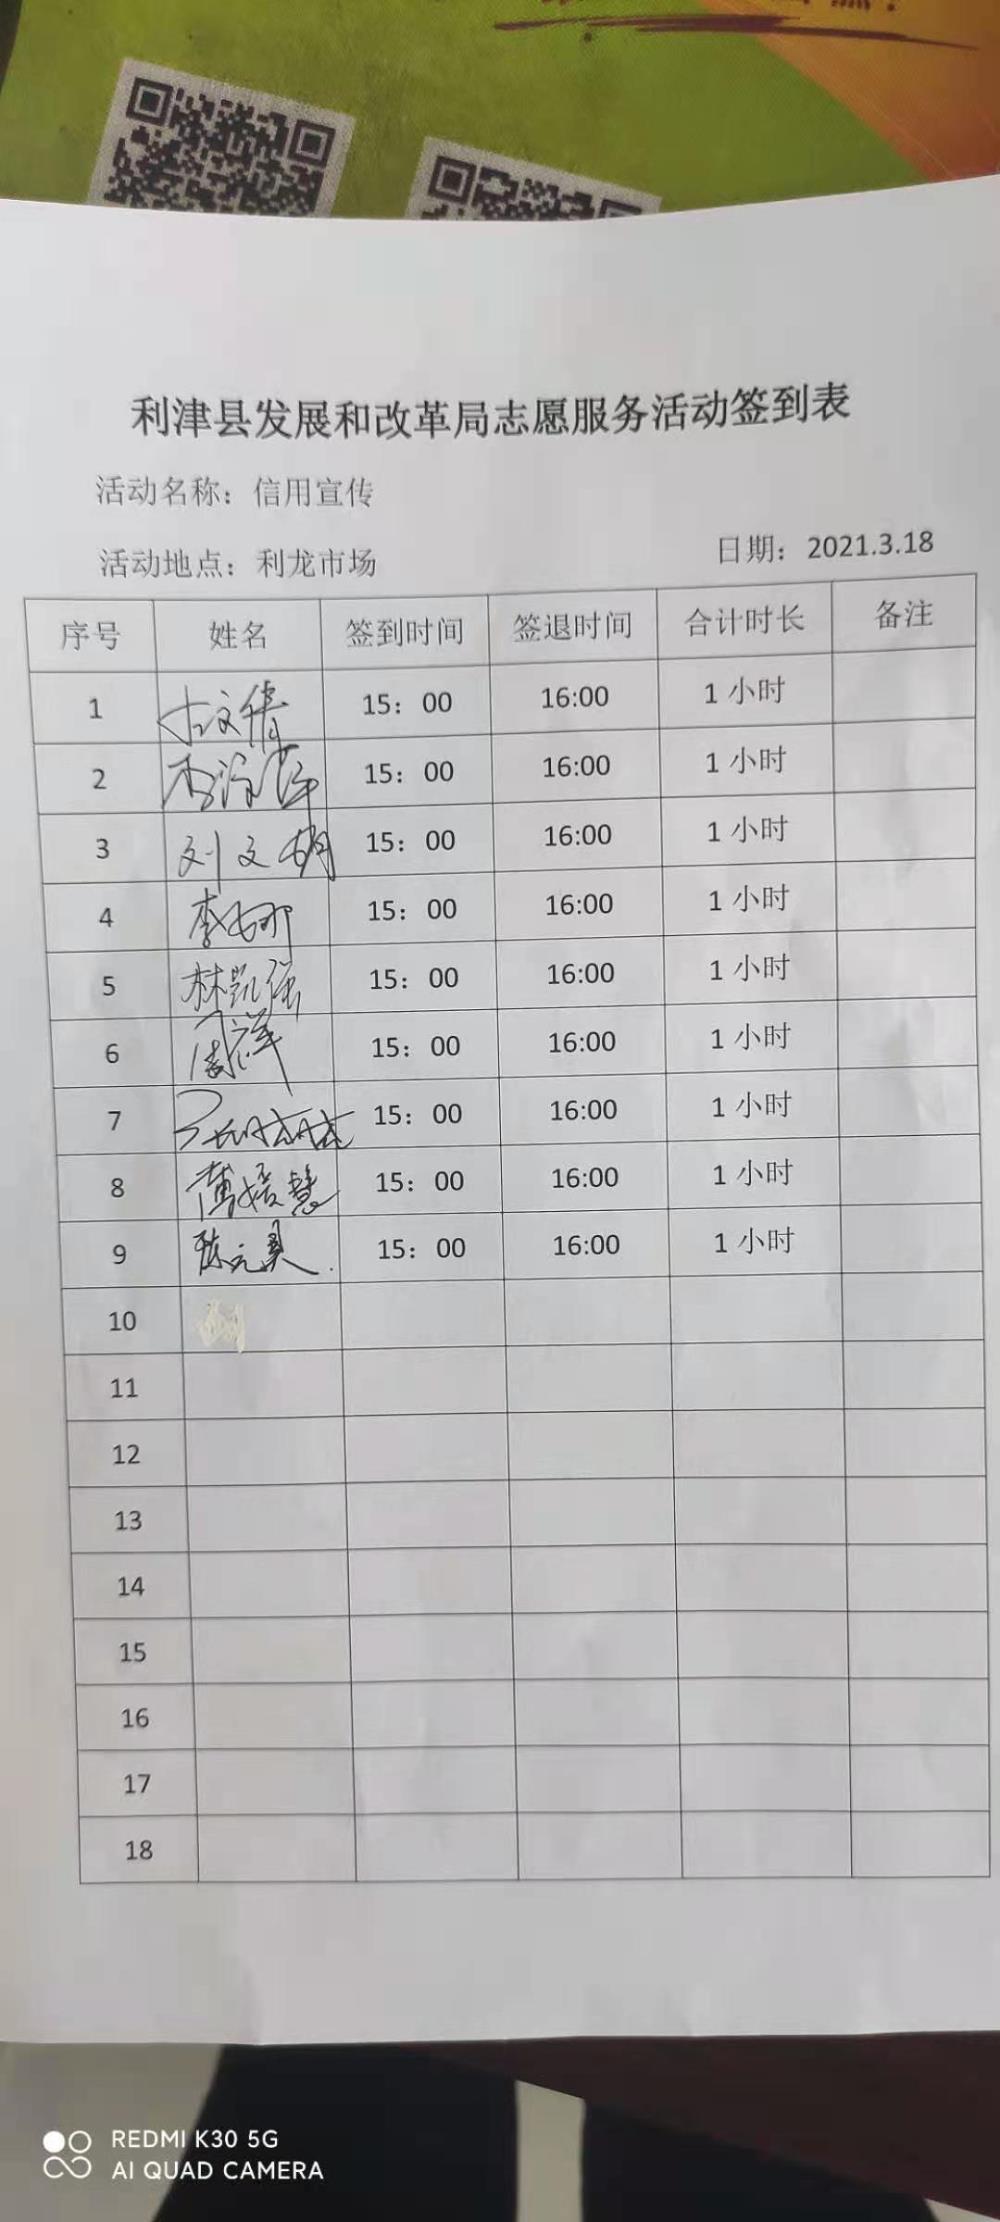 利津县发展和改革局志愿服务活动签到表
活动名称：信用宣传
活动地点：利龙市场 日期：2021.3.18
序号 姓名 签到时间 签退时间 合计时长 备注
1 15：00 16:00 1 小时
2 15：00 16:00 1 小时
3 刘文明 15：00 16:00 1 小时
4 李娜 15：00 16:00 1 小时
5 林凯强 15：00 16:00 1 小时
6 周祥 15：00 16:00 1 小时
7 15：00 16:00 1 小时
8 15：00 16:00 1 小时
9 15：00 16:00 1 小时
10
11
12
13
14
15
16
17
18
REDMI K30 5G
AI QUAD CAMERA